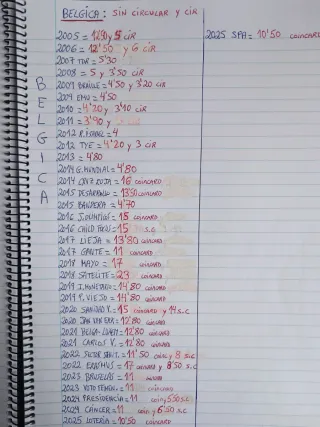 BELGICA: SIN CIRCULAR Y CIR
BELGICA
2005 = 12'90 y 5 CIR
2006 = 12'50 y 6 CIR
2007 TDR = 5'30
2008 = 5 y 3'50 CIR
2009 BRAILLE = 4'50 y 3'20 CIR
2009 EMU = 4'50
2010 = 4'20 y 3'10 CIR
2011 = 3'90 y
2012 = 4
2012 TYE = 4'20 y 3 CIR
2013 = 4'80
2014 G. MUNDIAL = 4'80
2014 CRUZ ROJA = 16 COINCARD
2015 DESARROLLO = 13'50 COINCARD
2015 BANDERA = 4'70
2016 J. OLIMPICOS = 15 COINCARD
2016 CHILD FOCUS = 15 S.C
2017 LIEJA = 13'80 COINCARD
2017 GANTE = 11 COINCARD
2018 MAYO = 17 COINCARD
2018 SATELITE = 23 COINCARD
2019 I. MONETARIO = 14'80 COINCARD
2019 P. VIEJO = 14'80 COINCARD
2020 = 15 COINCARD y 14 S.C
2020 JAN VAN EYCK = 12'80 COINCARD
2021 = 12'80 COINCARD
2021 CARLOS V. = 12'80 COINCARD
2022 = 11'50 COIN y 8 S.C
2022 ERASMUS = 17 COINCARD y 8'50 S.C
2023 BRUSELAS = 11 COINCARD
2023 VOTO FEMEN. = 11 COINCARD
2024 PRESIDENCIA = 11 COIN y 5'50 S.C
2024 CANCER = 11 COIN y 6'50 S.C
2025 LOTERIA = 10'50 COINCARD
2025 SPA = 10'50 COINCARD